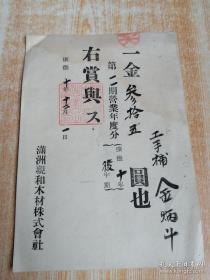 一金 參拾五圓也
第二期營業年度分(康德十年後半期)
右賞與ス
康德十年十二月一日
滿洲親和木材株式會社
工手補 金炳斗